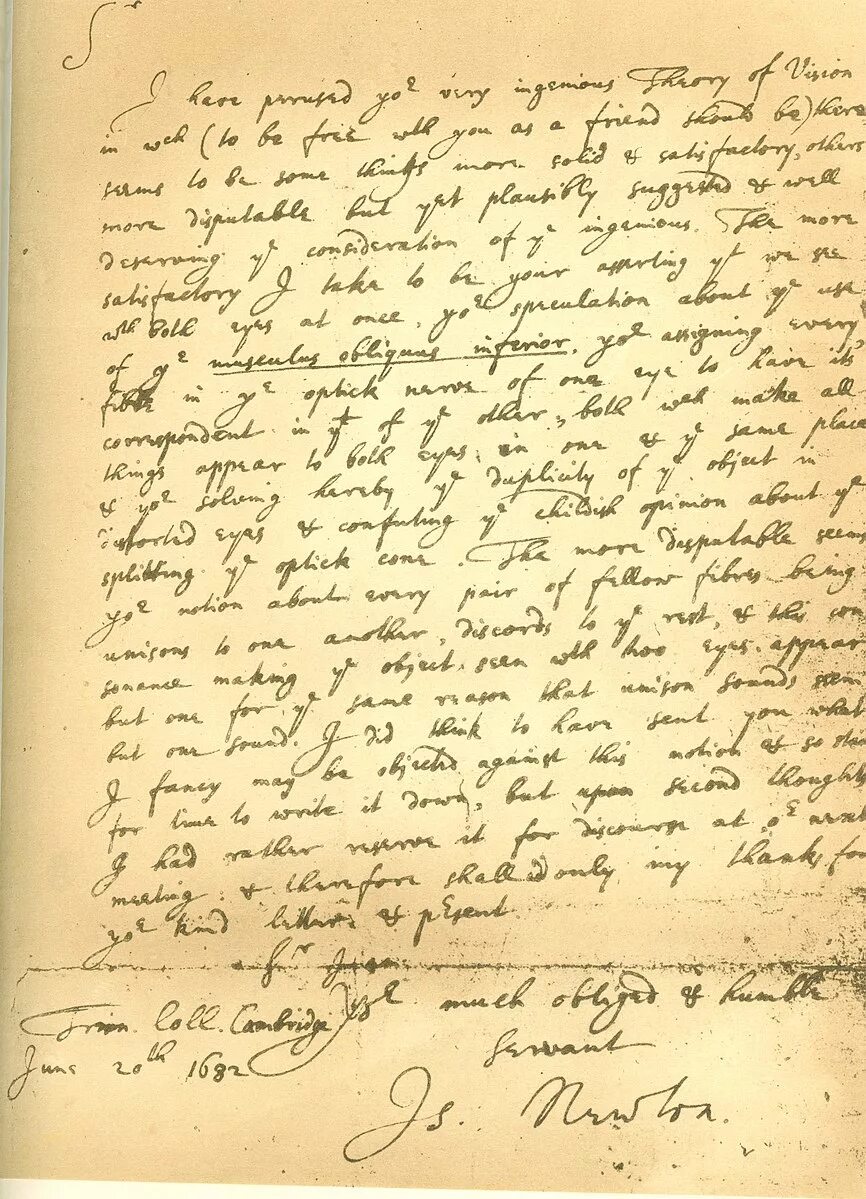 Sr
I have perused yor very ingenious Theory of Vision
in wch (to be free wth you as a friend should be) there
seems to be some things more solid & satisfactory, others
more disputable but yet plausibly suggested & well
deserving ye consideration of ye ingenious. The more
satisfactory I take to be your asserting yt we see
wth both eyes at once, yor speculation about ye use
of ye musculus obliquus inferior, yor assigning every
fibre in ye optick nerve of one eye to have its
correspondent in yt of ye other, both wch make all
things appear to both eyes in one & ye same place
& yor solving hereby ye duplicity of ye object in
distorted eyes & confuting ye childish opinion about ye
splitting ye optick cone. The more disputable seems
yor notion about every pair of fellow fibres being
unisons to one another, discords to ye rest, & this con
sonance making ye object seen wth two eyes appear
but one for ye same reason that unison sounds seem
but one sound. I did think to have sent you what
I fancy may be objected against this notion & so staid
for time to write it down, but upon second thoughts
I had rather reserve it for discourse at or next
meeting: & therefore shall add only my thanks for
yor kind letter & prsent.
Sr I am
yor much obliged & humble
Servant
Trin. Coll. Cambridge
June 20th 1682
Is. Newton.